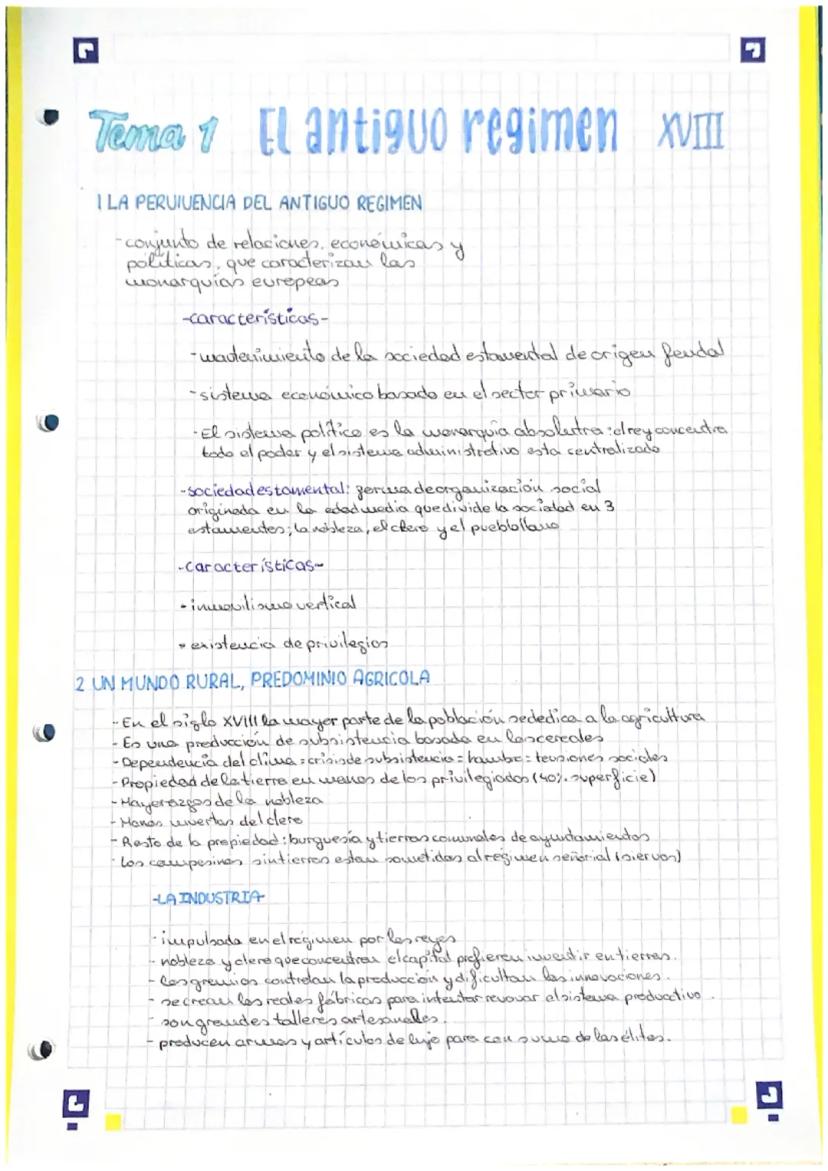 Tema 1 El antiguo regimen XVIII
1 LA PERVIVENCIA DEL ANTIGUO REGIMEN
-conjunto de relaciones, económicas y
políticas, que caracterizan las
monarquías europeas
-características-
-mantenimiento de la sociedad estamental de origen feudal
-sistema económico basado en el sector primario
-El sistema político es la monarquía absolutra: el rey concentra
todo el poder y el sistema administrativo esta centralizado
-sociedad estamental: forma de organización social
originada en la edad media que divide la sociedad en 3
estamentos; la nobleza, el clero y el pueblo llano
-características-
-inmovilismo vertical
-existencia de privilegios
2 UN MUNDO RURAL, PREDOMINIO AGRICOLA
-En el siglo XVIII la mayor parte de la población se dedica a la agricultura
-Es una producción de subsistencia basada en los cereales
-Dependencia del clima = crisis de subsistencia = hambre = tensiones sociales
-Propiedad de la tierra en manos de los privilegiados (40%. superficie)
-Mayorazgos de la nobleza
-Manos muertas del clero
-Resto de la propiedad: burguesía y tierras comunales de ayuntamientos
Los campesinos sin tierras estan sometidos al régimen señorial (siervos)
-LA INDUSTRIA-
-impulsada en el régimen por los reyes
-nobleza y clero que concentran el capital prefieren invertir en tierras.
-los gremios controlan la producción y dificultan las innovaciones.
-se crean las reales fábricas para intentar renovar el sistema productivo.
-son grandes talleres artesanales.
-producen armas y artículos de lujo para consumo de las élites.